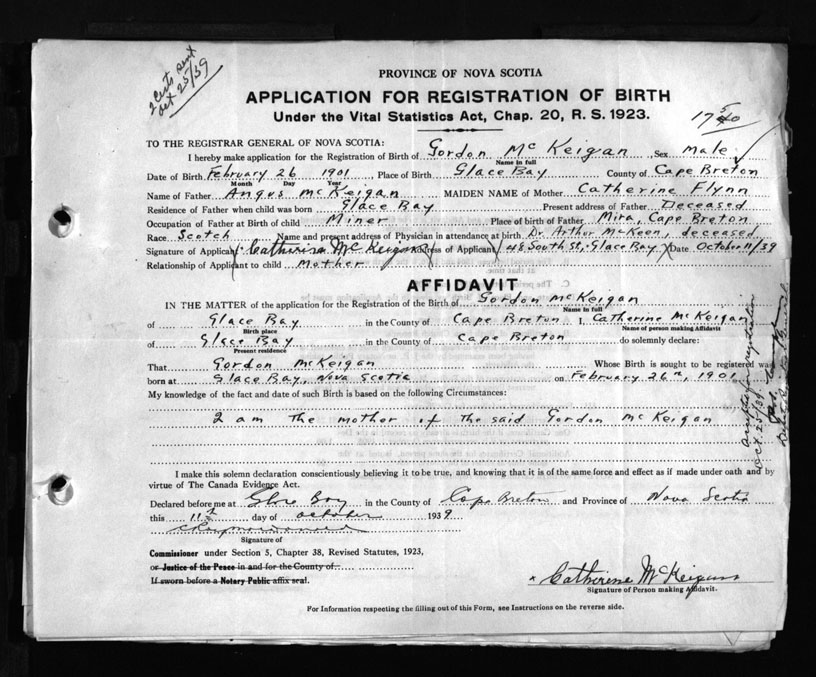 2 Certs sent
Oct 25/39
PROVINCE OF NOVA SCOTIA
APPLICATION FOR REGISTRATION OF BIRTH
Under the Vital Statistics Act, Chap. 20, R. S. 1923.
TO THE REGISTRAR GENERAL OF NOVA SCOTIA:
I hereby make application for the Registration of Birth of Gordon McKeigan Sex male
Name in full
Date of Birth February 26 1901 Place of Birth Glace Bay County of Cape Breton
Month Day Year
Name of Father Angus McKeigan MAIDEN NAME of Mother Catherine Flynn
Residence of Father when child was born Glace Bay Present address of Father Deceased
Occupation of Father at Birth of child Miner Place of birth of Father Mira, Cape Breton
Race Scotch Name and present address of Physician in attendance at birth Dr. Arthur McKeen, deceased
Signature of Applicant Catherine McKeigan Address of Applicant 48 South St, Glace Bay Date October 11/39
Relationship of Applicant to child mother
AFFIDAVIT
IN THE MATTER of the application for the Registration of the Birth of Gordon McKeigan
Name in full
of Glace Bay in the County of Cape Breton I, Catherine McKeigan
Birth place Name of person making Affidavit
of Glace Bay in the County of Cape Breton do solemnly declare:
Present residence
That Gordon McKeigan Whose Birth is sought to be registered was
born at Glace Bay, Nova Scotia on February 26th, 1901
My knowledge of the fact and date of such Birth is based on the following Circumstances:
I am the mother of the said Gordon McKeigan
I make this solemn declaration conscientiously believing it to be true, and knowing that it is of the same force and effect as if made under oath and by
virtue of The Canada Evidence Act.
Declared before me at Glace Bay in the County of Cape Breton and Province of Nova Scotia
this 11th day of October 1939
Signature of
Commissioner under Section 5, Chapter 38, Revised Statutes, 1923,
or Justice of the Peace in and for the County of
If sworn before a Notary Public affix seal.
Catherine McKeigan
Signature of Person making Affidavit.
For Information respecting the filling out of this Form, see Instructions on the reverse side.
accepted for registration
Oct. 25/39
Deputy Registrar General